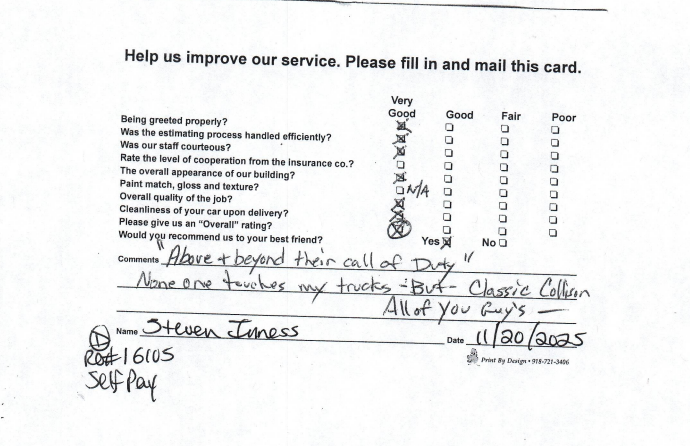 Help us improve our service. Please fill in and mail this card.
Very Good Good Fair Poor
Being greeted properly?
Was the estimating process handled efficiently?
Was our staff courteous?
Rate the level of cooperation from the insurance co.?
The overall appearance of our building?
Paint match, gloss and texture? N/A
Overall quality of the job?
Cleanliness of your car upon delivery?
Please give us an "Overall" rating?
Would you recommend us to your best friend? Yes No
Comments "Above + beyond their call of Duty"
None one touches my trucks - But - Classic Collison
All of You Guy's —
Name Steven Inness Date 11/20/2025
RO# 16105
Self Pay
Print By Design • 918-721-3406